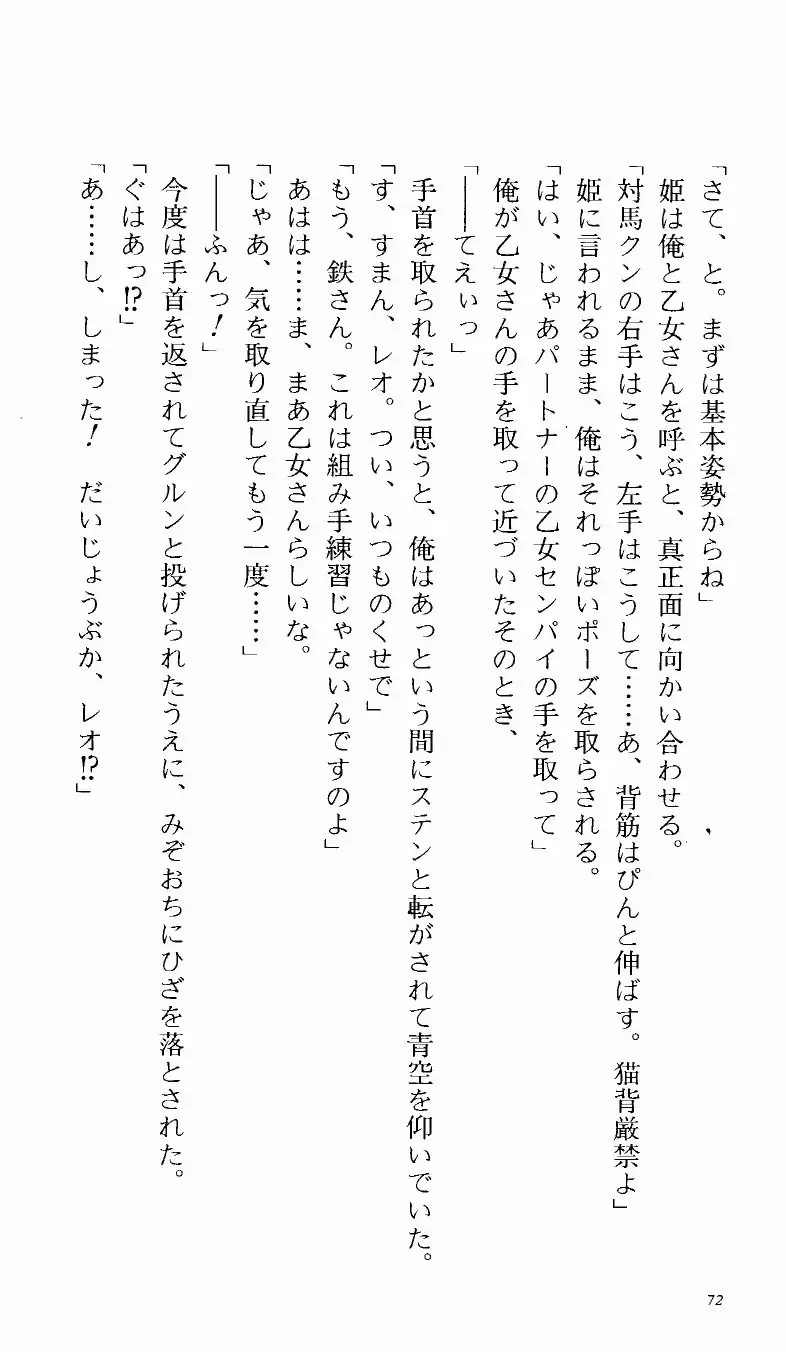 「さて、と。まずは基本姿勢からね」
姫は俺と乙女さんを呼ぶと、真正面に向かい合わせる。
「対馬クンの右手はこう、左手はこうして……あ、背筋はぴんと伸ばす。猫背厳禁よ」
姫に言われるまま、俺はそれっぽいポーズを取らされる。
「はい、じゃあパートナーの乙女センパイの手を取って」
俺が乙女さんの手を取って近づいたそのとき、
「――てえぃっ」
手首を取られたかと思うと、俺はあっという間にステンと転がされて青空を仰いでいた。
「す、すまん、レオ。つい、いつものくせで」
「もう、鉄さん。これは組み手練習じゃないんですのよ」
あはは……ま、まあ乙女さんらしいな。
「じゃあ、気を取り直してもう一度……」
「――ふんっ！」
今度は手首を返されてグルンと投げられたうえに、みぞおちにひざを落とされた。
「ぐはあっ!?」
「あ……し、しまった！　だいじょうぶか、レオ!?」
72